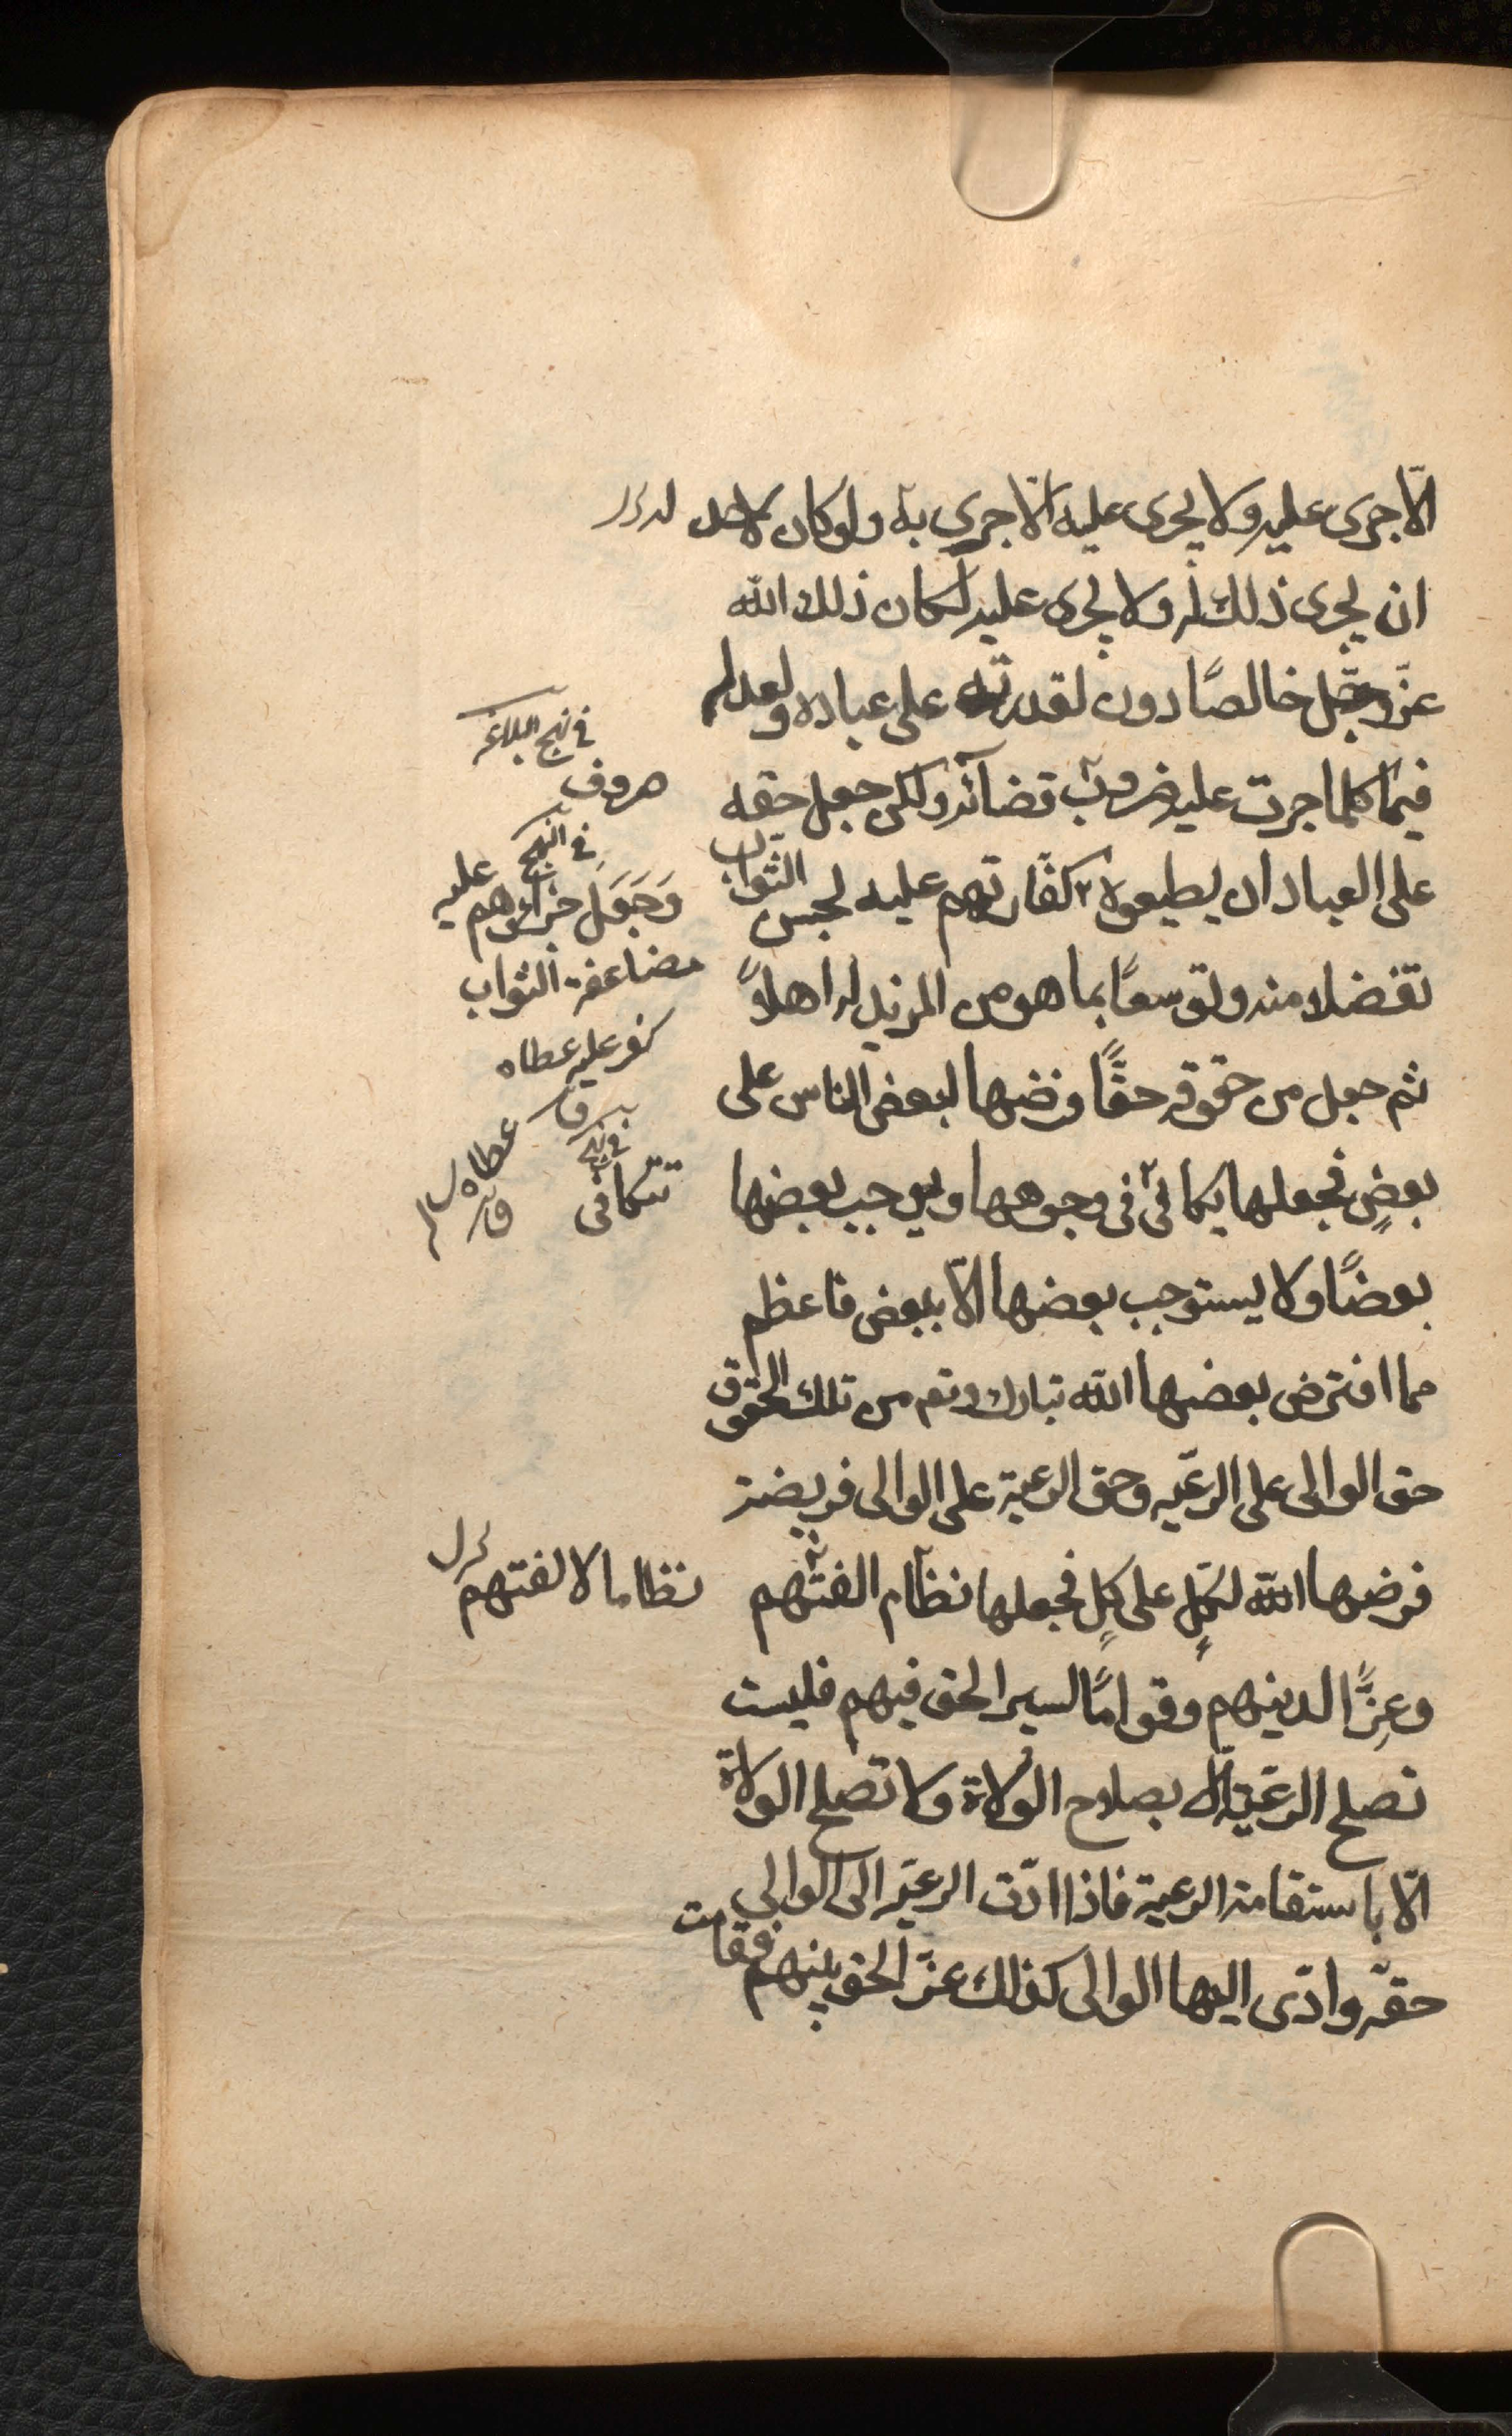 الّا جرى عليه ولا يجرى عليه الّا جرى به ولو كان لاحد
ان يجرى ذلك له ولا يجرى عليه لكان ذلك الله
عزّ وجّل خالصًا دون لقدرته على عباده ولعدله
فيما كلما جرت عليه ضروب قضآئه ولكن جعل حقه
على العباد ان يطيعوه كفّارتهم عليه لحسن الثواب
تفضلا منه وتوسعًا بما هو من المزيد له اهلاً
ثم جعل من حقوقه حقًّا فرضها لبعض الناس على
بعضٍ فجعلها يكافى فى وجوهها ويوجب بعضها
بعضًا ولا يستوجب بعضها الّا ببعض فاعظم
مما افترض بعضها الله تبارك وتع من تلك الحقوق
حق الوالى على الرعّيه وحق الرعية على الوالى فريضة
فرضها الله لكلٍ على كلٍ فجعلها نظام الفتهم
وعِزًّا لدينهم وقوامًا لسير الحق فيهم فليست
تصلح الرعّية الّا بصلاح الولاة ولا تصلح الولاة
الّا باستقامة الرعية فاذا ادّت الرعيّه الى الوالى
حقّه وادّى اليها الوالى كذلك عزّ الحق بينهم فقامت
فى نهج البلاغه
صروف
فى النهج
وَجَعَلَ جزاؤهم عليه
مضاعفة الثواب
كفر عليه عطاه
عطاه
تتكافى
نظاما لالفتهم